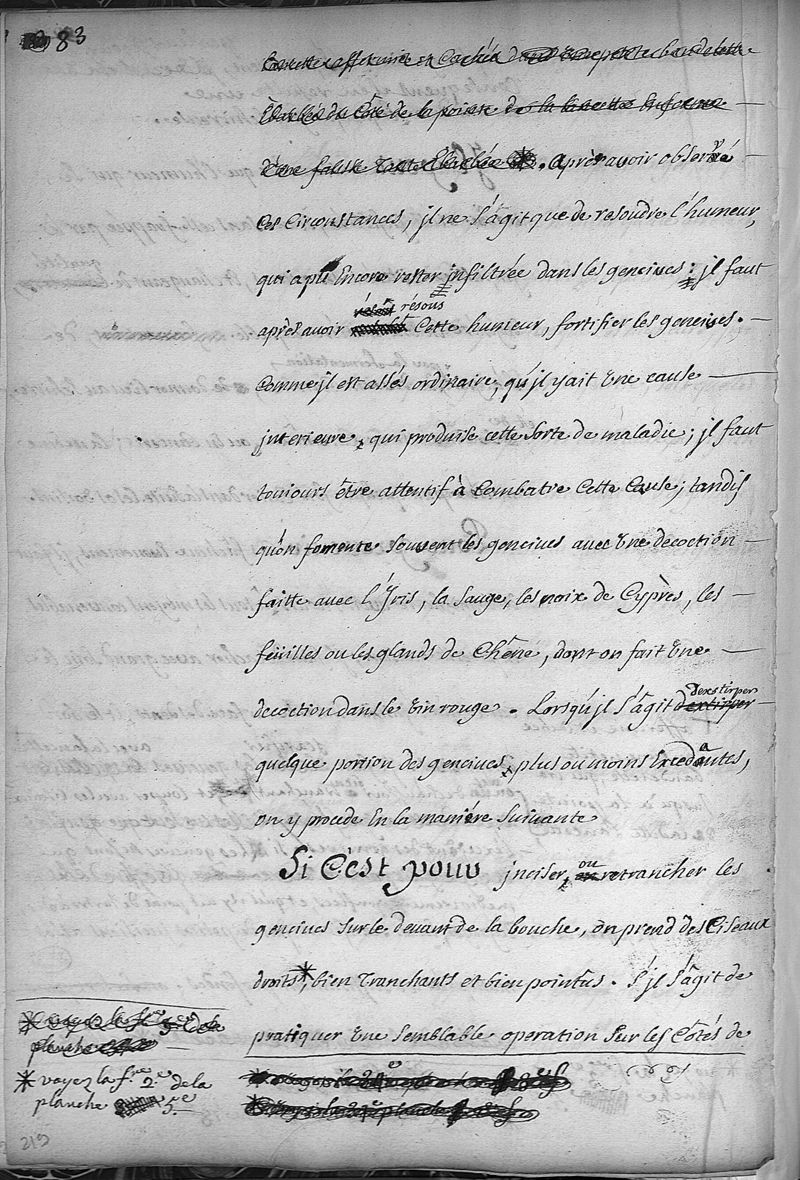 83
Lancette affermie et Cachée dans une petite bandelette
Ebarbée du Côté de la pointe de la lancette
d'une fausse Tente Ebarbée *. Après avoir observé
Ces Circonstances, jl ne s'agit que de resoudre l'humeur,
qui a pû Encore rester jnfiltrée dans les gencives: jl faut
résous
après avoir Cette humeur, fortifier les gencives.
Comme jl est assés ordinaire, qu'jl y ait Une cause
jnterieure, qui produise cette sorte de maladie; jl faut
toujours être attentif à Combatre Cette Cause; tandis
qu'on fomente souvent les gencives avec Une decoction
faitte avec l'Yris, la sauge, les noix de Cyprès, les
feüilles ou les glands de Chêne, dont on fait Une
decoction dans le vin rouge. Lorsqu'jl s'agit d'extirper
d'exstirper
quelque portion des gencives, plus ou moins Excedantes,
on y procede En la maniére suivante
Si C'est pour jnciser, ou retrancher les
gencives sur le devant de la bouche, on prend des Ciseaux
droits*, bien Tranchants et bien pointus. S'jl s'agit de
pratiquer Une semblable operation sur les Côtés de
* voyez la f.re 3.e de la
planche
* voyez la f.re 2.e de la
planche 5.e
219